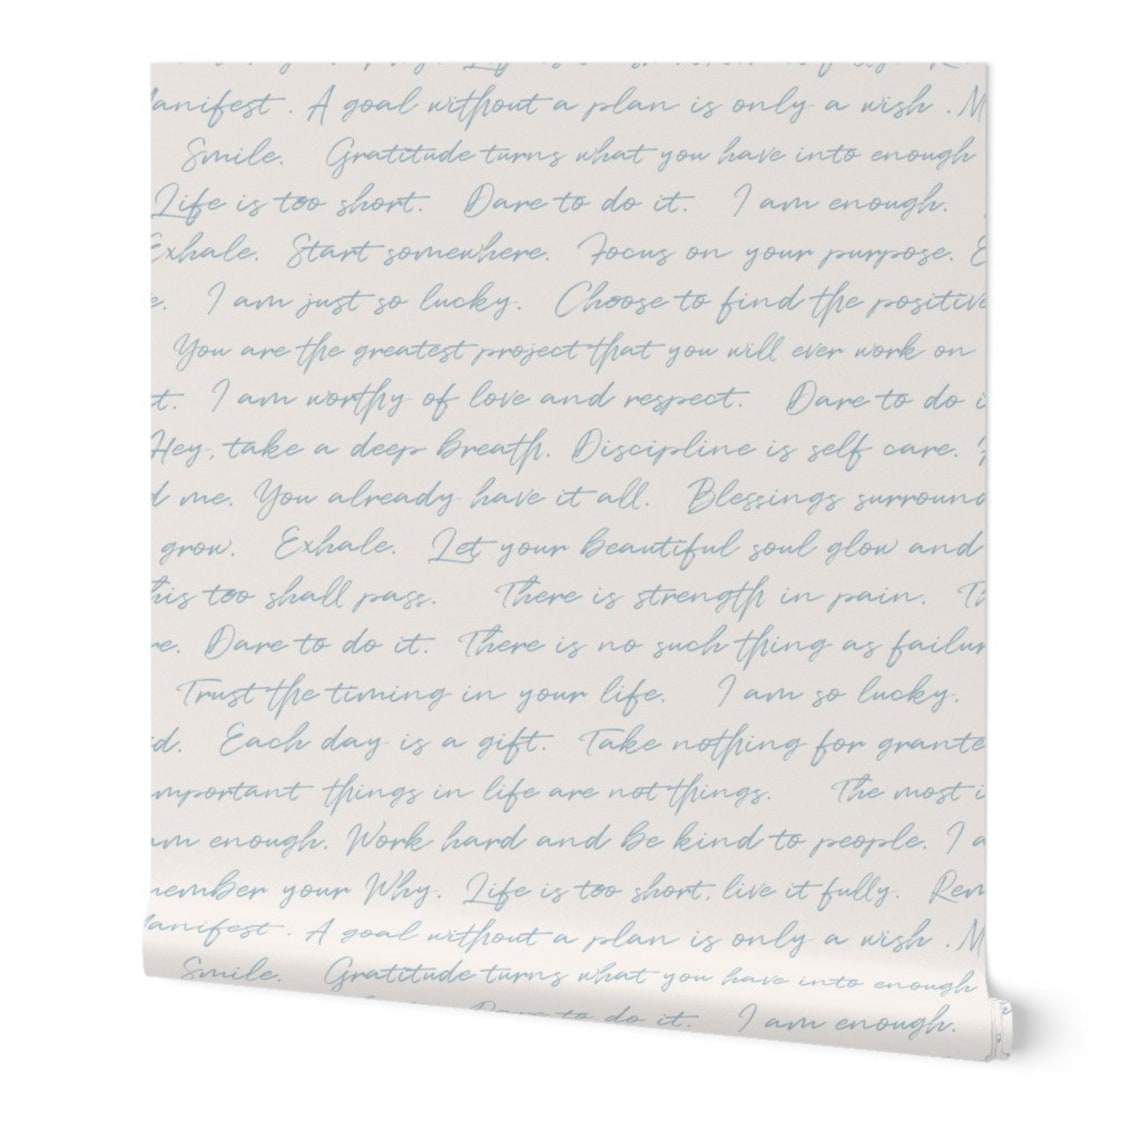 Manifest . A goal without a plan is only a wish . M
Smile. Gratitude turns what you have into enough
Life is too short. Dare to do it. I am enough.
Exhale. Start somewhere. Focus on your purpose. E
e. I am just so lucky. Choose to find the positive
You are the greatest project that you will ever work on
t. I am worthy of love and respect. Dare to do i
Hey, take a deep breath. Discipline is self care. H
d me. You already have it all. Blessings surround
grow. Exhale. Let your beautiful soul glow and
his too shall pass. There is strength in pain. Th
re. Dare to do it. There is no such thing as failur
Trust the timing in your life. I am so lucky.
d. Each day is a gift. Take nothing for grante
mportant things in life are not things. The most i
am enough. Work hard and be kind to people. I a
member your Why. Life is too short, live it fully. Rem
Manifest . A goal without a plan is only a wish . M
Smile. Gratitude turns what you have into enough
Dare to do it. I am enough.